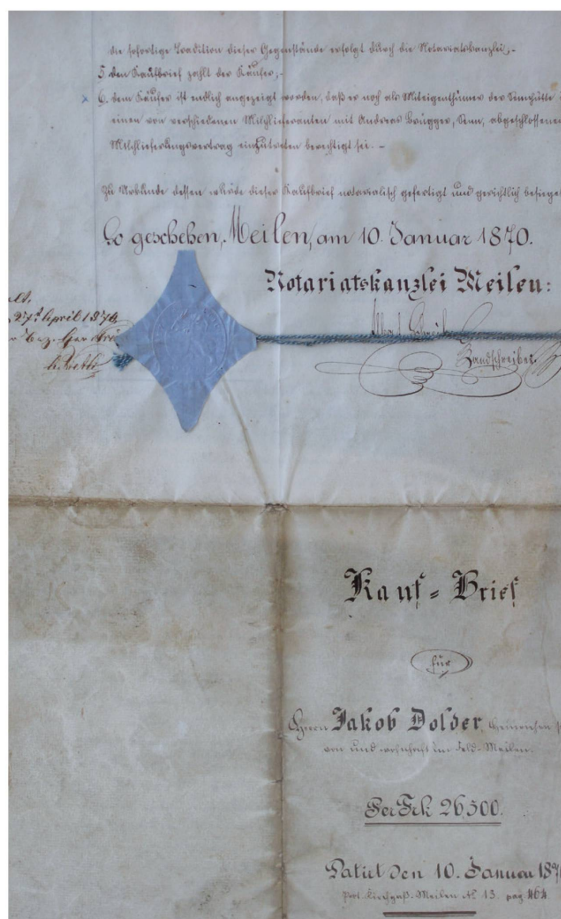 die sofortige Tradition dieser Gegenstände erfolgt durch die Notariatskanzlei,-
5. den Kaufbrief zahlt der Käufer,-
6. dem Käufer ist endlich angezeigt worden, daß er noch als Miteigenthümer der Sennhütte
einen von verschiedenen Milchlieferanten mit Andreas Brügger, Senn, abgeschlossenen
Milchlieferungsvertrag einzutreten berechtigt sei. -
Zu Urkunde dessen dieser Kaufbrief notarialisch gefertigt und gerichtlich
So geschehen, Meilen, am 10. Januar 1870.
Notariatskanzlei Meilen:
27t April 1874
Landschreiber.
Kauf = Brief
für
Herrn Jakob Dolder,
von und wohnhaft im Feld-Meilen.
Per Frk 26500.
Datirt den 10. Januar 187
Prot. Kirchgaß-Meilen No 13. pag. 464.